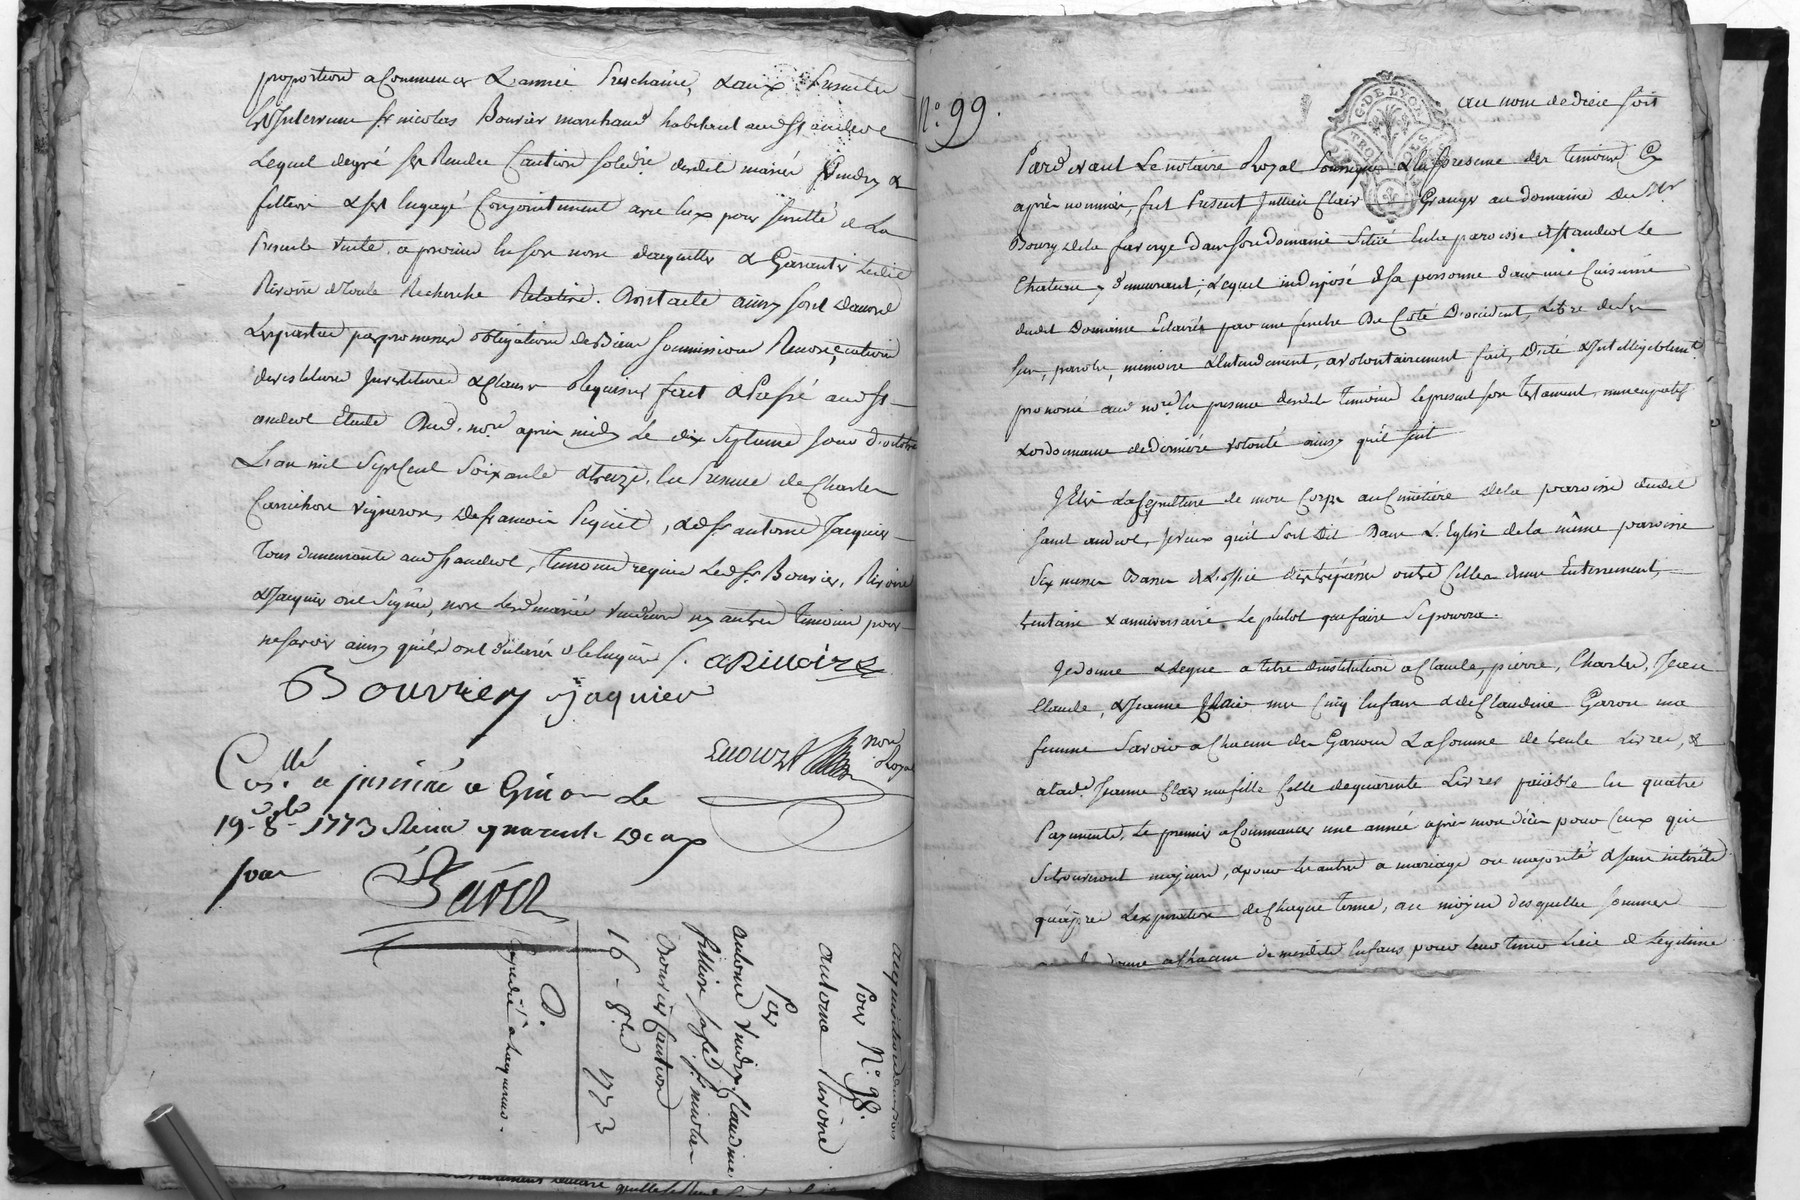 proportion a Commencer L'année Prochaine, & aux presentes
est Intervenu Sr nicolas Bouvier marchand habitant aud St andeol
Lequel de gré sest Rendu Caution solidre desdits mariés &
fillion & sest Engagé Conjointement avec Eux pour sureté de La
Presente vente, a promis En son nom d'acquitter & Garantir ledit
Rivoire de toute Recherche Relative. Dont acte ainsy fort d'accord
Les parties par promesses obligations de Biens soumissions Renonciations
& Clauses Requises fait & Passé aud St
andeol Etude Dud. nore après midy le dix septieme jour d'octobre
L'an mil sept Cent soixante & treize, En Presence de Charles
vigneron, de francois & de Sr antoine Jacquier
tous demeurants aud St andeol, temoins requis Led Sr Bouvier, Rivoire
& Jacquier ont signé, non Lesd mariés ny autre temoin pour
ne savoir ainsy qu'ils ont declaré de ce Enquis /. A RIVOIRE
Bouvier Jaquier
nore Royal
Coslé a justiné a Givors Le
19 8bre 1773 Reçu quarante deux
sous
acquisition
Pour N.º 98.
antoine Rivoire
Par
antoine Claudine
fillion Sr nicolas
Bouvier Caution
16 - 8bre 1773
Expedié à Lacquereur.
N.º 99.
G. DE LYON
au nom de dieu soit
Pardevant Le notaire Royal soussigné & En presence des temoins Cy
après nommés, fut Present Jullien Clair Granger au domaine Du Sr
Boury de la faverge dans son domaine situé En la paroisse de St andeol le
Chateau y demeurant, Lequel indisposé de sa personne dans une Cuisine
dudit Domaine Eclairée par une fenetre Du Coté D'occident, Libre de ses
sens, parole, memoire & Entendement, a volontairement fait, Dicté & Intelligiblemt
prononcé aud nore En presence desdits temoins Le present son testament nuncupatif
& ordonnance de derniere volonté ainsy qu'il suit
J'Elis La sepulture de mon Corps au Cimitiere de la paroisse dudit
saint andeol, Je veux qu'il soit Dit Dans L'Eglise de la même paroisse
six messes Basses & L'office des trépassés outre Celles de mon Enterrement,
trentaine & anniversaire Le plutot que faire se pourra.
Je donne & Legue a titre d'institution a Claude, pierre, Charles, Jean
Claude, & Jeanne Clair mes Cinq Enfans & de Claudine Garon ma
femme savoir a Chacun des Garcons La somme de trente Livres, &
a lad. Jeanne Clair ma fille Celle de quarente Livres païable En quatre
Payements, Le premier a Commencer une année après mon décès pour Ceux qui
se trouveront majeurs, & pour les autres a mariage ou majorité & sans interêts
qu'après L'expiration de Chaque terme, au moyen desquelles sommes
a Chacun de mesdits Enfans pour leur tenir lieu de Legitime